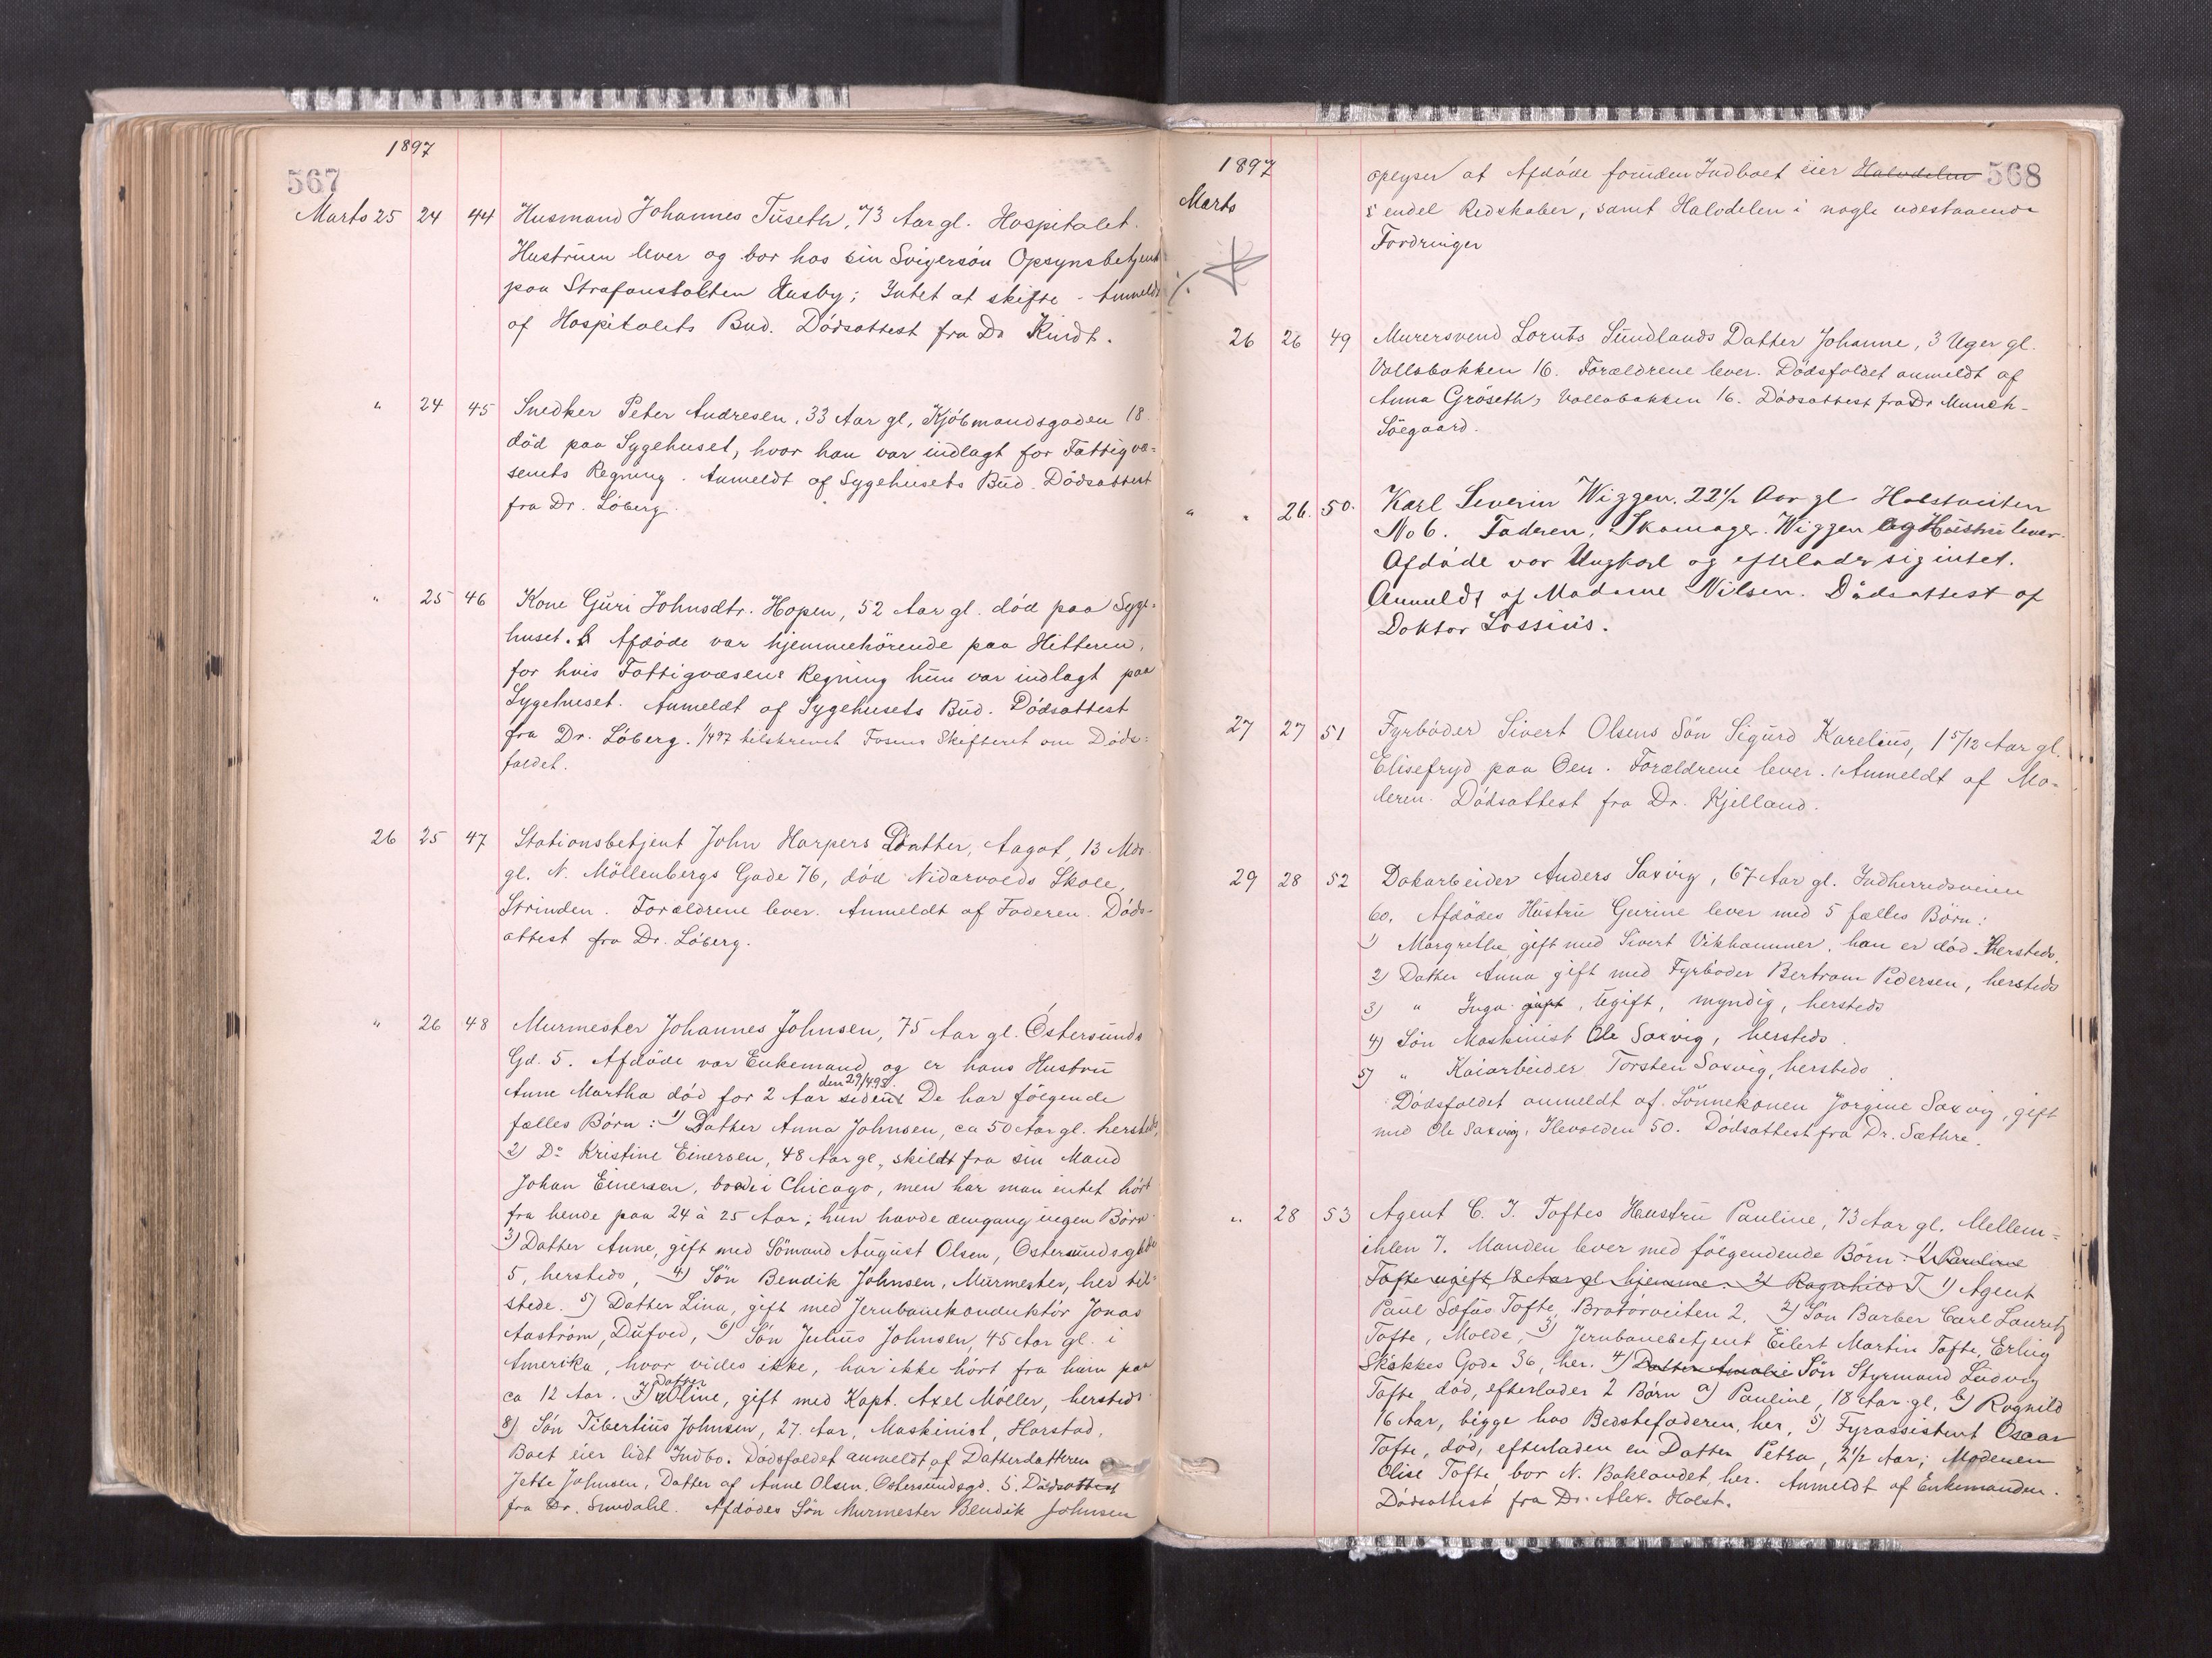 1897
567
Marts 25 24 44 Husmand Johannes Tuseth, 73 Aar gl. Hospitalet.
Hustruen lever og bor hos sin Svigersön Opsynsbetjent
paa Strafanstalten Husby; Intet at skifte - Anmeldt
af Hospitalets Bud. Dödsattest fra Dr Kindt.
" 24 45 Snedker Peter Andresen, 33 Aar gl, Kjöbmandsgaden 18.
död paa Sygehuset, hvor han var indlagt for Fattigvæ-
senets Regning. Anmeldt af Sygehusets Bud. Dödsattest
fra Dr. Löberg.
" 25 46 Kone Guri Johnsdtr. Hopen, 52 Aar gl. död paa Syge-
huset. Afdöde var hjemmehörende paa Hitteren,
for hvis Fattigvæsens Regning hun var indlagt paa
Sygehuset. Anmeldt af Sygehusets Bud. Dödsattest
fra Dr. Löberg. 1/4 97 tilskrevet Fosens Skifteret om Döds-
faldet.
26 25 47 Stationsbetjent John Harpers Datter, Aagot, 13 Mdr.
gl. N. Möllenbergs Gade 76, död Nidarvolds Skole,
Strinden. Forældrene lever. Anmeldt af Faderen. Döds-
attest fra Dr. Löberg.
" 26 48 Murmester Johannes Johnsen, 75 Aar gl. Östersunds
Gd. 5. Afdöde var Enkemand og er hans Hustru
den 29/4 95.
Anne Martha död for 2 Aar siden. De har fölgende
fælles Börn: 1) Datter Anna Johnsen, ca 50 Aar gl. hersteds,
2) Do Kristine Einersen, 48 Aar gl., skildt fra sin Mand
Johan Einersen, boede i Chicago, men har man intet hört
fra hende paa 24 à 25 Aar; hun havde dengang ingen Börn.
3) Datter Anne, gift med Sömand August Olsen, Ostersundsgade
5, hersteds, 4) Sön Bendik Johnsen, Murmester, her til-
stede. 5) Datter Lina, gift med Jernbanekonduktör Jonas
Aaström, Dufved, 6) Sön Julius Johnsen, 45 Aar gl. i
Amerika, hvor vides ikke, har ikke hört fra ham paa
Datter
ca 12 Aar. 7) Oline, gift med Kapt. Axel Möller, hersteds.
8) Sön Tibertius Johnsen, 27 Aar, Maskinist, Harstad.
Boet eier lidt Indbo. Dödsfaldet anmeldt af Datterdatteren
Jette Johnsen, Datter af Anne Olsen, Ostersundsgd. 5. Dödsattest
fra Dr. Smedahl. Afdödes Sön Murmester Bendik Johnsen
1897
568
Marts
oplyser at Afdöde foruden Indboet eier Halvdelen
endel Redskaber, samt Halvdelen i nogle udestaaende
Fordringer
26 26 49 Murersvend Lornts Sundlands Datter Johanne, 3 Uger gl.
Vollabakken 16. Forældrene lever. Dödsfaldet anmeldt af
Anna Gröseth, Vollabakken 16. Dödsattest fra Dr Munch-
Söegaard.
" " 26. 50. Karl Severin Wiggen, 22 1/2 Aar gl. Holstveiten
No 6. Faderen, Skomager Wiggen og Hustru lever.
Afdöde var Ungkarl og efterlader sig intet.
Anmeldt af Madame Nilsen. Dödsattest af
Doktor Lossius.
27 27 51 Fyrböder Sivert Olsens Sön Sigurd Karelius, 1 5/12 Aar gl.
Elisefryd paa Öen. Forældrene lever. Anmeldt af Mo-
deren. Dödsattest fra Dr. Kjelland.
29 28 52 Dokarbeider Anders Saxvig, 67 Aar gl. Indherredsveien
60. Afdödes Hustru Gurine lever med 5 fælles Börn:
1) Margrethe, gift med Sivert Vikhammer, han er död. Hersteds.
2) Datter Anna gift med Fyrböder Bertram Pedersen, hersteds
3) " Inga gift, ugift, myndig, hersteds
4) Sön Maskinist Ole Saxvig, hersteds.
5) " Kaiarbeider Torsten Saxvig, hersteds.
Dödsfaldet anmeldt af Sönnekonen Jörgine Saxvig, gift
med Ole Saxvig, Ilevolden 50. Dödsattest fra Dr. Sæthre.
" 28 53 Agent C. J. Toftes Hustru Pauline, 73 Aar gl. Mellem-
ihlen 7. Manden lever med fölgendende Börn: 1) Pauline
Tofte ugift, 18 Aar gl. hjemme. 2) Ragnhild T 1) Agent
Paul Sofus Tofte, Bratörveiten 2, 2) Sön Barber Carl Lauritz
Tofte, Molde, 3) Jernbanebetjent Eilert Martin Tofte, Erling
Skakkes Gade 36, her. 4) Datter Amalie Sön Styrmand Ludvig
Tofte, död, efterlader 2 Börn a) Pauline, 18 Aar gl. b) Ragnild
16 Aar, bigge hos Bedstefaderen, her, 5) Fyrassistent Oscar
Tofte, död, efterladen en Datter Petra, 2 1/2 Aar; Moderen
Olise Tofte bor N. Baklandet, her. Anmeldt af Enkemanden.
Dödsattest fra Dr. Alex. Holst.